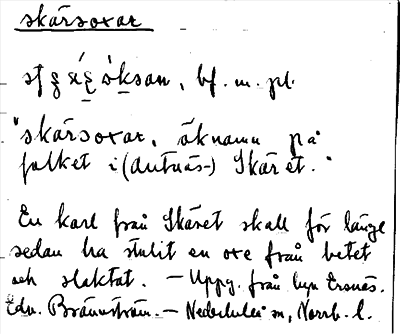 skärsoxar
óksan, bf. m. pl.
"skärsoxar, öknamn på
folket i (Antnäs-) Skäret."
En karl från Skäret skall för länge
sedan ha stulit en oxe från betet
och slaktat. — Uppg. från byn Ersnäs.
Edv. Brännström. — Nederluleå sn, Norrb. l.